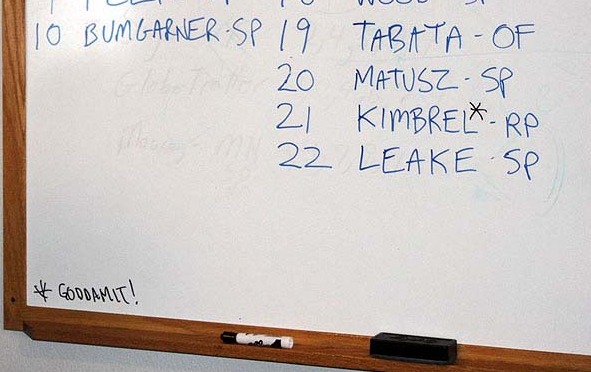 10 BUMGARNER-SP
19 TABATA - OF
20 MATUSZ - SP
21 KIMBREL* - RP
22 LEAKE - SP
* GODDAMIT!